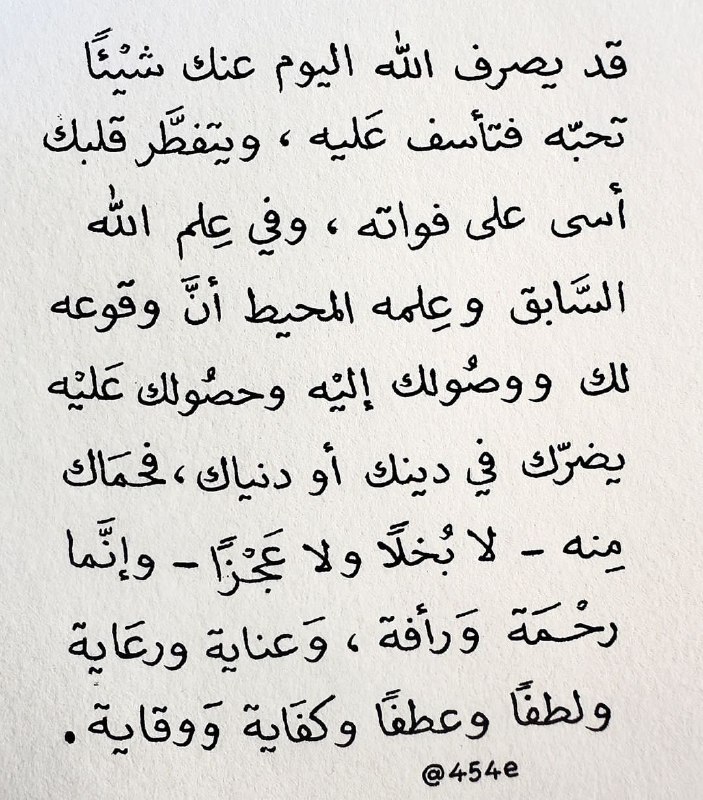 قد يصرف الله اليوم عنك شيْئًا
تحبّه فتأسف عَليه ، ويتفطَّر قلبك
أسى على فواته ، وفي عِلم الله
السَّابق وعِلمه المحيط أنَّ وقوعه
لك ووصُولك إليْه وحصُولك عَليْه
يضرّك في دينك أو دنياك ، فحمَاك
مِنه - لا بُخلًا ولا عَجْزًا - وإنَّما
رحْمَة وَرأفة ، وَعناية ورعَاية
ولطفًا وعطفًا وكفَاية وَوقاية .
@454e